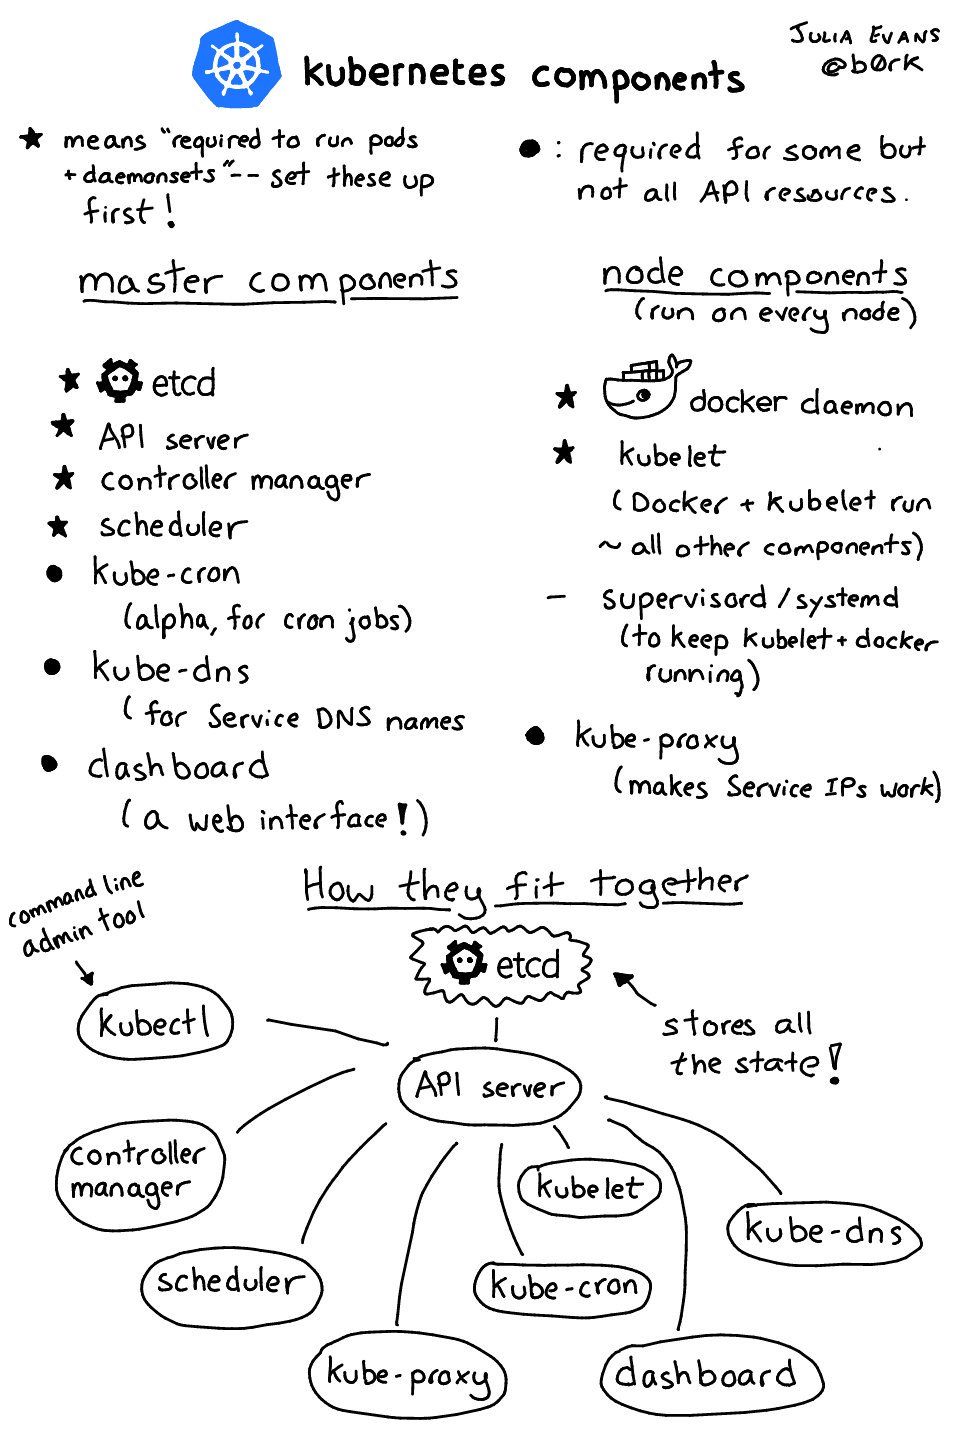 kubernetes components
JULIA EVANS
@b0rk
★ means "required to run pods
+ daemonsets" -- set these up
first!
● : required for some but
not all API resources.
master components
★ etcd
★ API server
★ controller manager
★ scheduler
● kube-cron
(alpha, for cron jobs)
● kube-dns
(for Service DNS names
● dashboard
(a web interface!)
node components
(run on every node)
★ docker daemon
★ kubelet
(Docker + kubelet run
~ all other components)
- supervisord / systemd
(to keep kubelet + docker
running)
● kube-proxy
(makes Service IPs work)
How they fit together
command line
admin tool
etcd
kubectl
stores all
the state!
API server
controller
manager
kubelet
kube-dns
scheduler
kube-cron
kube-proxy
dashboard